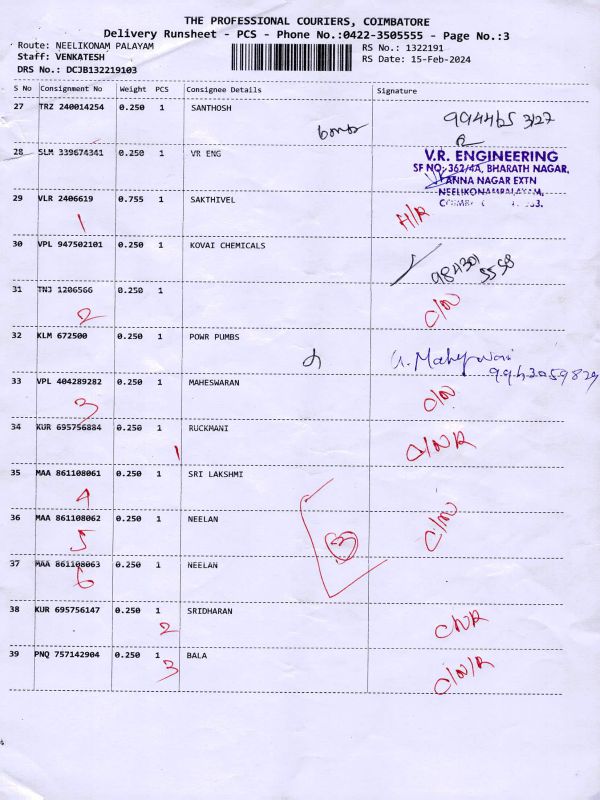 THE PROFESSIONAL COURIERS, COIMBATORE
Delivery Runsheet - PCS - Phone No.:0422-3505555 - Page No.:3
Route: NEELIKONAM PALAYAM RS No.: 1322191
Staff: VENKATESH RS Date: 15-Feb-2024
DRS No.: DCJB132219103
S No Consignment No Weight PCS Consignee Details Signature
27 TRZ 240014254 0.250 1 SANTHOSH
28 SLM 339674341 0.250 1 VR ENG
V.R. ENGINEERING
SF NO: 362/4A, BHARATH NAGAR,
ANNA NAGAR EXTN
NEELIKONAMPALAYAM,
29 VLR 2406619 0.755 1 SAKTHIVEL
1
30 VPL 947502101 0.250 1 KOVAI CHEMICALS
31 TNJ 1206566 0.250 1
2
32 KLM 672500 0.250 1 POWR PUMBS
9943059829
33 VPL 404289282 0.250 1 MAHESWARAN
3
34 KUR 695756884 0.250 1 RUCKMANI
1
35 MAA 861108061 0.250 1 SRI LAKSHMI
4
36 MAA 861108062 0.250 1 NEELAN
5
3
37 MAA 861108063 0.250 1 NEELAN
6
38 KUR 695756147 0.250 1 SRIDHARAN
2
39 PNQ 757142904 0.250 1 BALA
3